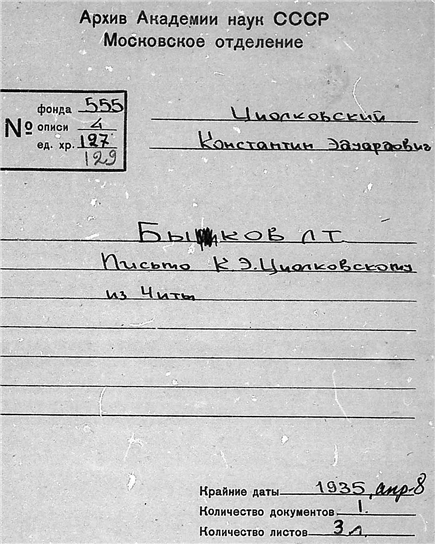 Архив Академии наук СССР
Московское отделение
№
фонда 555
описи 4
ед. хр. 127
129
Циолковский
Константин Эдуардович
Быков Л Т
Письмо К.Э.Циолковскому
из Читы
Крайние даты 1935, апр-8
Количество документов 1.
Количество листов 3 л.